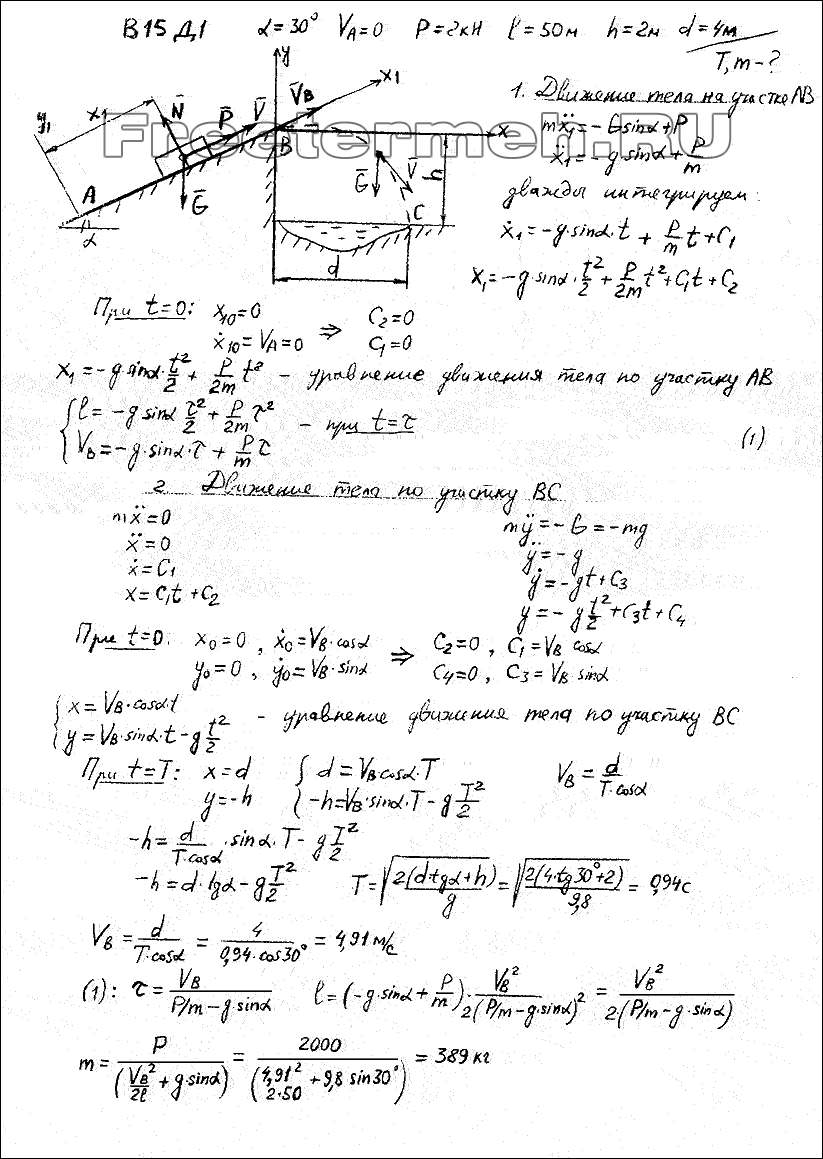 В15 Д1 α=30° V_A=0 P=2кН l=50м h=2м d=4м
T, m-?
y
x₁
y₁
x₁
N̄ P̄ V̄ V̄_B
x
A
B
Ḡ
Ḡ V̄
h
C
α
d
Freetermeh.RU
1. Движение тела на участке AB
mẍ₁ = -G sinα + P
ẍ₁ = -g sinα + P/m
дважды интегрируем:
ẋ₁ = -g·sinα·t + P/m t + C₁
x₁ = -g·sinα·t²/2 + P/2m t² + C₁t + C₂
При t=0: x₁₀=0 ⇒ C₂=0
ẋ₁₀=V_A=0 C₁=0
x₁ = -g sinα·t²/2 + P/2m t² - уравнение движения тела по участку AB
{ l = -g sinα τ²/2 + P/2m τ² - при t=τ
V_B = -g·sinα·τ + P/m τ (1)
2 Движение тела по участку BC
mẍ=0 mÿ = -G = -mg
ẍ=0 ÿ = -g
ẋ=C₁ ẏ = -gt + C₃
x=C₁t+C₂ y = -g t²/2 + C₃t + C₄
При t=0: x₀=0, ẋ₀=V_B·cosα ⇒ C₂=0, C₁=V_B cosα
y₀=0, ẏ₀=V_B·sinα C₄=0, C₃=V_B sinα
{ x=V_B·cosα·t - уравнение движения тела по участку BC
y=V_B·sinα·t - g t²/2
При t=T: x=d { d=V_B cosα·T V_B = d/(T·cosα)
y=-h -h=V_B·sinα·T - g T²/2
-h = d/(T·cosα)·sinα·T - g T²/2
-h = d·tgα - g T²/2 T = √(2(d·tgα+h)/g) = √(2(4·tg30°+2)/9,8) = 0,94с
V_B = d/(T·cosα) = 4/(0,94·cos30°) = 4,91 м/с
(1): τ = V_B/(P/m - g·sinα) l = (-g·sinα + P/m)·V_B²/(2(P/m - g·sinα)²) = V_B²/(2·(P/m - g·sinα))
m = P/(V_B²/2l + g·sinα) = 2000/(4,91²/2·50 + 9,8 sin30°) = 389 кг